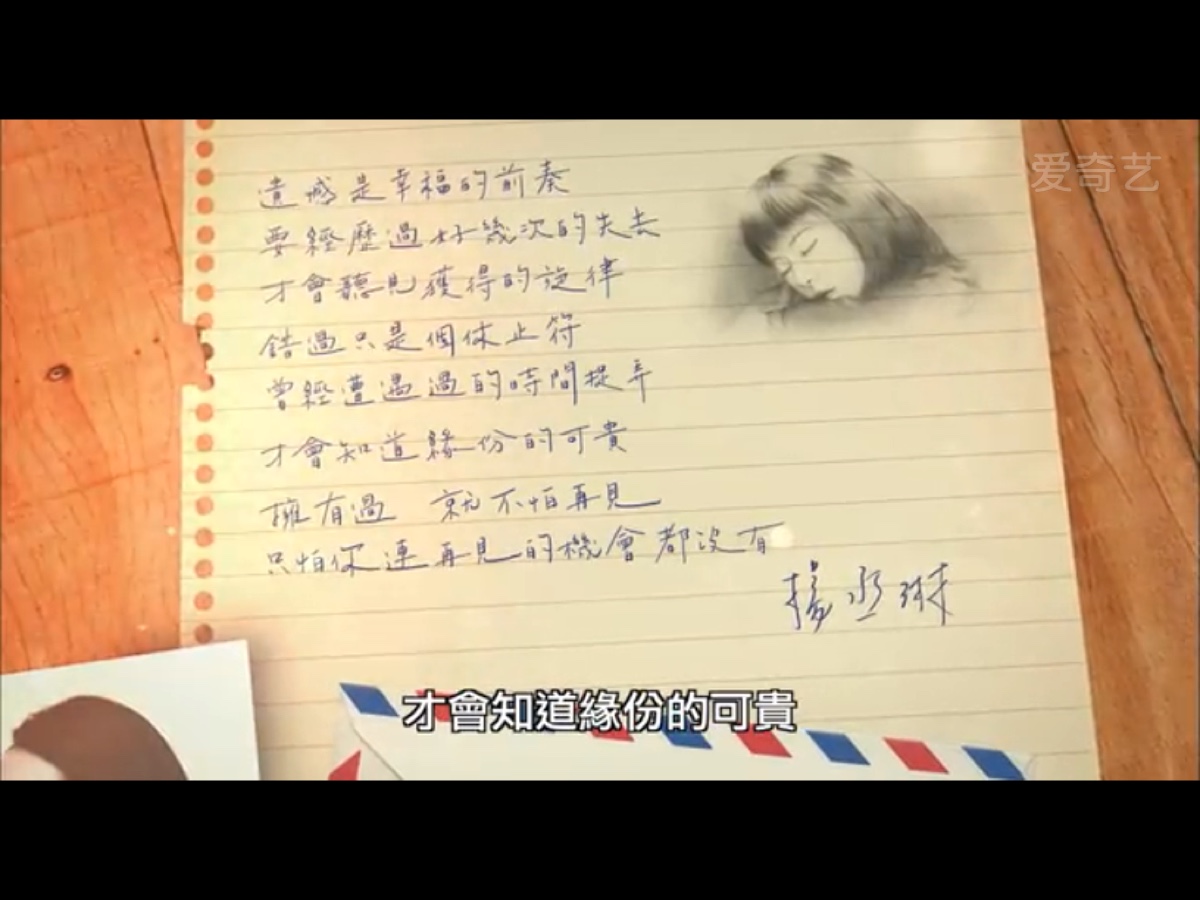 爱奇艺
遺憾是幸福的前奏
要經歷過好幾次的失去
才會聽見獲得的旋律
錯過只是個休止符
曾經遭遇過的時間捉弄
才會知道緣份的可貴
擁有過 就不怕再見
只怕你連再見的機會都沒有
楊丞琳
才會知道緣份的可貴